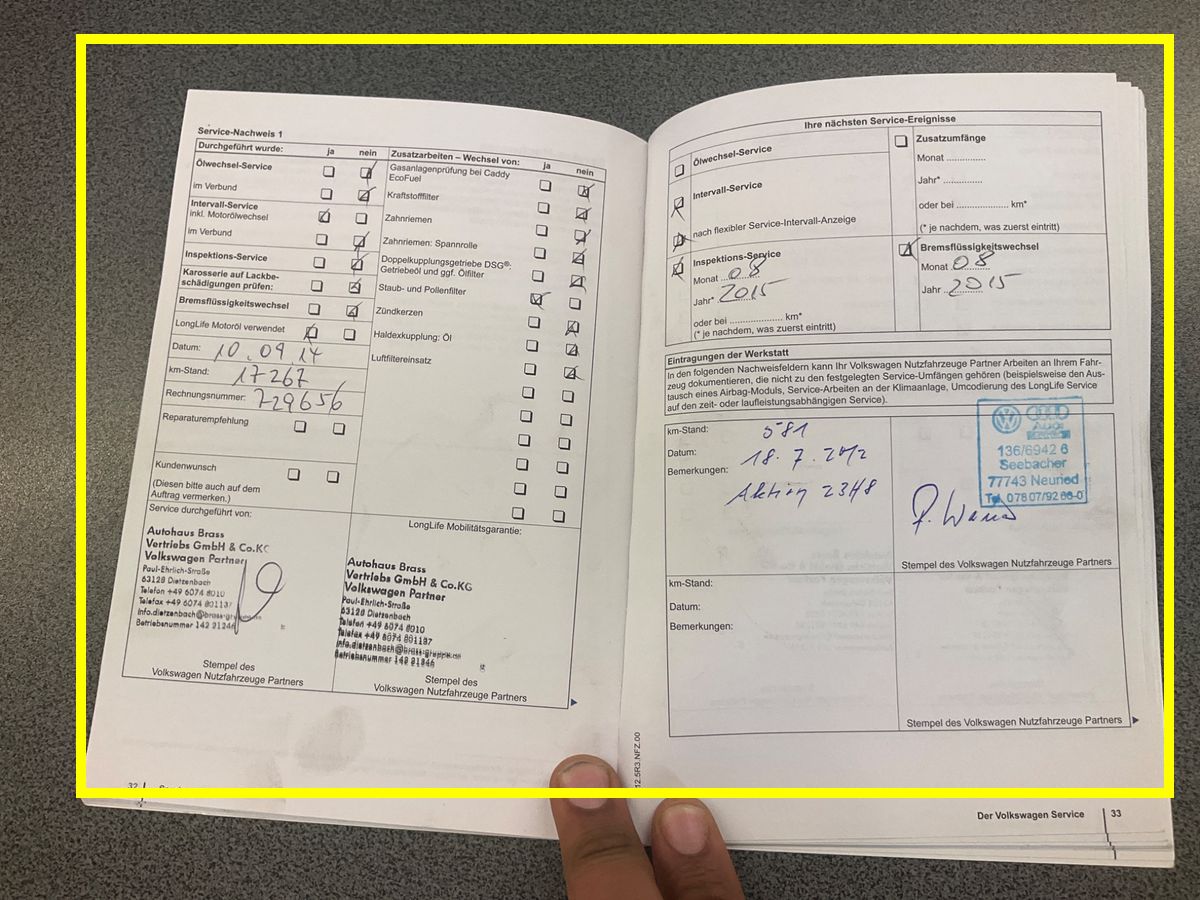 Service-Nachweis 1
Durchgeführt wurde: ja nein
Ölwechsel-Service
im Verbund
Intervall-Service
inkl. Motorölwechsel
im Verbund
Inspektions-Service
Karosserie auf Lackbe-
schädigungen prüfen:
Bremsflüssigkeitswechsel
LongLife Motoröl verwendet
Datum: 10.09.14
km-Stand: 17267
Rechnungsnummer: 729656
Reparaturempfehlung
Kundenwunsch
(Diesen bitte auch auf dem
Auftrag vermerken.)
Service durchgeführt von:
Autohaus Brass
Vertriebs GmbH & Co.KG
Volkswagen Partner
Paul-Ehrlich-Straße
63128 Dietzenbach
Telefon +49 6074 8010
Telefax +49 6074 801137
Betriebsnummer 142 21346
Stempel des
Volkswagen Nutzfahrzeuge Partners
Zusatzarbeiten – Wechsel von: ja nein
Gasanlagenprüfung bei Caddy
EcoFuel
Kraftstofffilter
Zahnriemen
Zahnriemen: Spannrolle
Doppelkupplungsgetriebe DSG®:
Getriebeöl und ggf. Ölfilter
Staub- und Pollenfilter
Zündkerzen
Haldexkupplung: Öl
Luftfiltereinsatz
LongLife Mobilitätsgarantie:
Autohaus Brass
Vertriebs GmbH & Co.KG
Volkswagen Partner
Paul-Ehrlich-Straße
63128 Dietzenbach
Telefon +49 6074 8010
Telefax +49 6074 801137
Betriebsnummer 142 21346
Stempel des
Volkswagen Nutzfahrzeuge Partners
32
Ihre nächsten Service-Ereignisse
Ölwechsel-Service
Intervall-Service
nach flexibler Service-Intervall-Anzeige
Inspektions-Service
Monat ...08
Jahr* 2015
oder bei .................... km*
(* je nachdem, was zuerst eintritt)
Zusatzumfänge
Monat ..............
Jahr* ..............
oder bei .................... km*
(* je nachdem, was zuerst eintritt)
Bremsflüssigkeitswechsel
Monat 08
Jahr ..2015
Eintragungen der Werkstatt
In den folgenden Nachweisfeldern kann Ihr Volkswagen Nutzfahrzeuge Partner Arbeiten an Ihrem Fahr-
zeug dokumentieren, die nicht zu den festgelegten Service-Umfängen gehören (beispielsweise den Aus-
tausch eines Airbag-Moduls, Service-Arbeiten an der Klimaanlage, Umcodierung des LongLife Service
auf den zeit- oder laufleistungsabhängigen Service).
km-Stand: 581
Datum: 18.7.2012
Bemerkungen:
Aktion 23H8
Audi
136/6942 6
Seebacher
77743 Neuried
Tel. 07807/92 66-0
Stempel des Volkswagen Nutzfahrzeuge Partners
km-Stand:
Datum:
Bemerkungen:
Stempel des Volkswagen Nutzfahrzeuge Partners
12.5R3.NFZ.00
Der Volkswagen Service 33